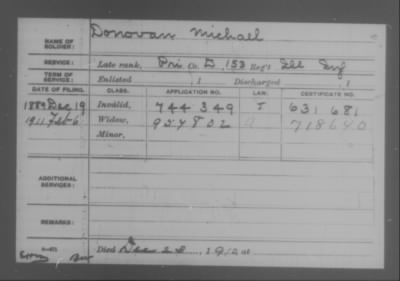 Donovan Michael
NAME OF SOLDIER:
SERVICE: Late rank, Priv. Co. D, 153 Reg't Ill Inf
TERM OF SERVICE: Enlisted , 1 Discharged , 1
DATE OF FILING. CLASS. APPLICATION NO. LAW. CERTIFICATE NO.
1889 Dec 19 Invalid, 744 349 I 631 681
1911 Feb 6 Widow, 954802 718640
Minor,
ADDITIONAL SERVICES:
REMARKS:
Died Dec 28, 1910 at